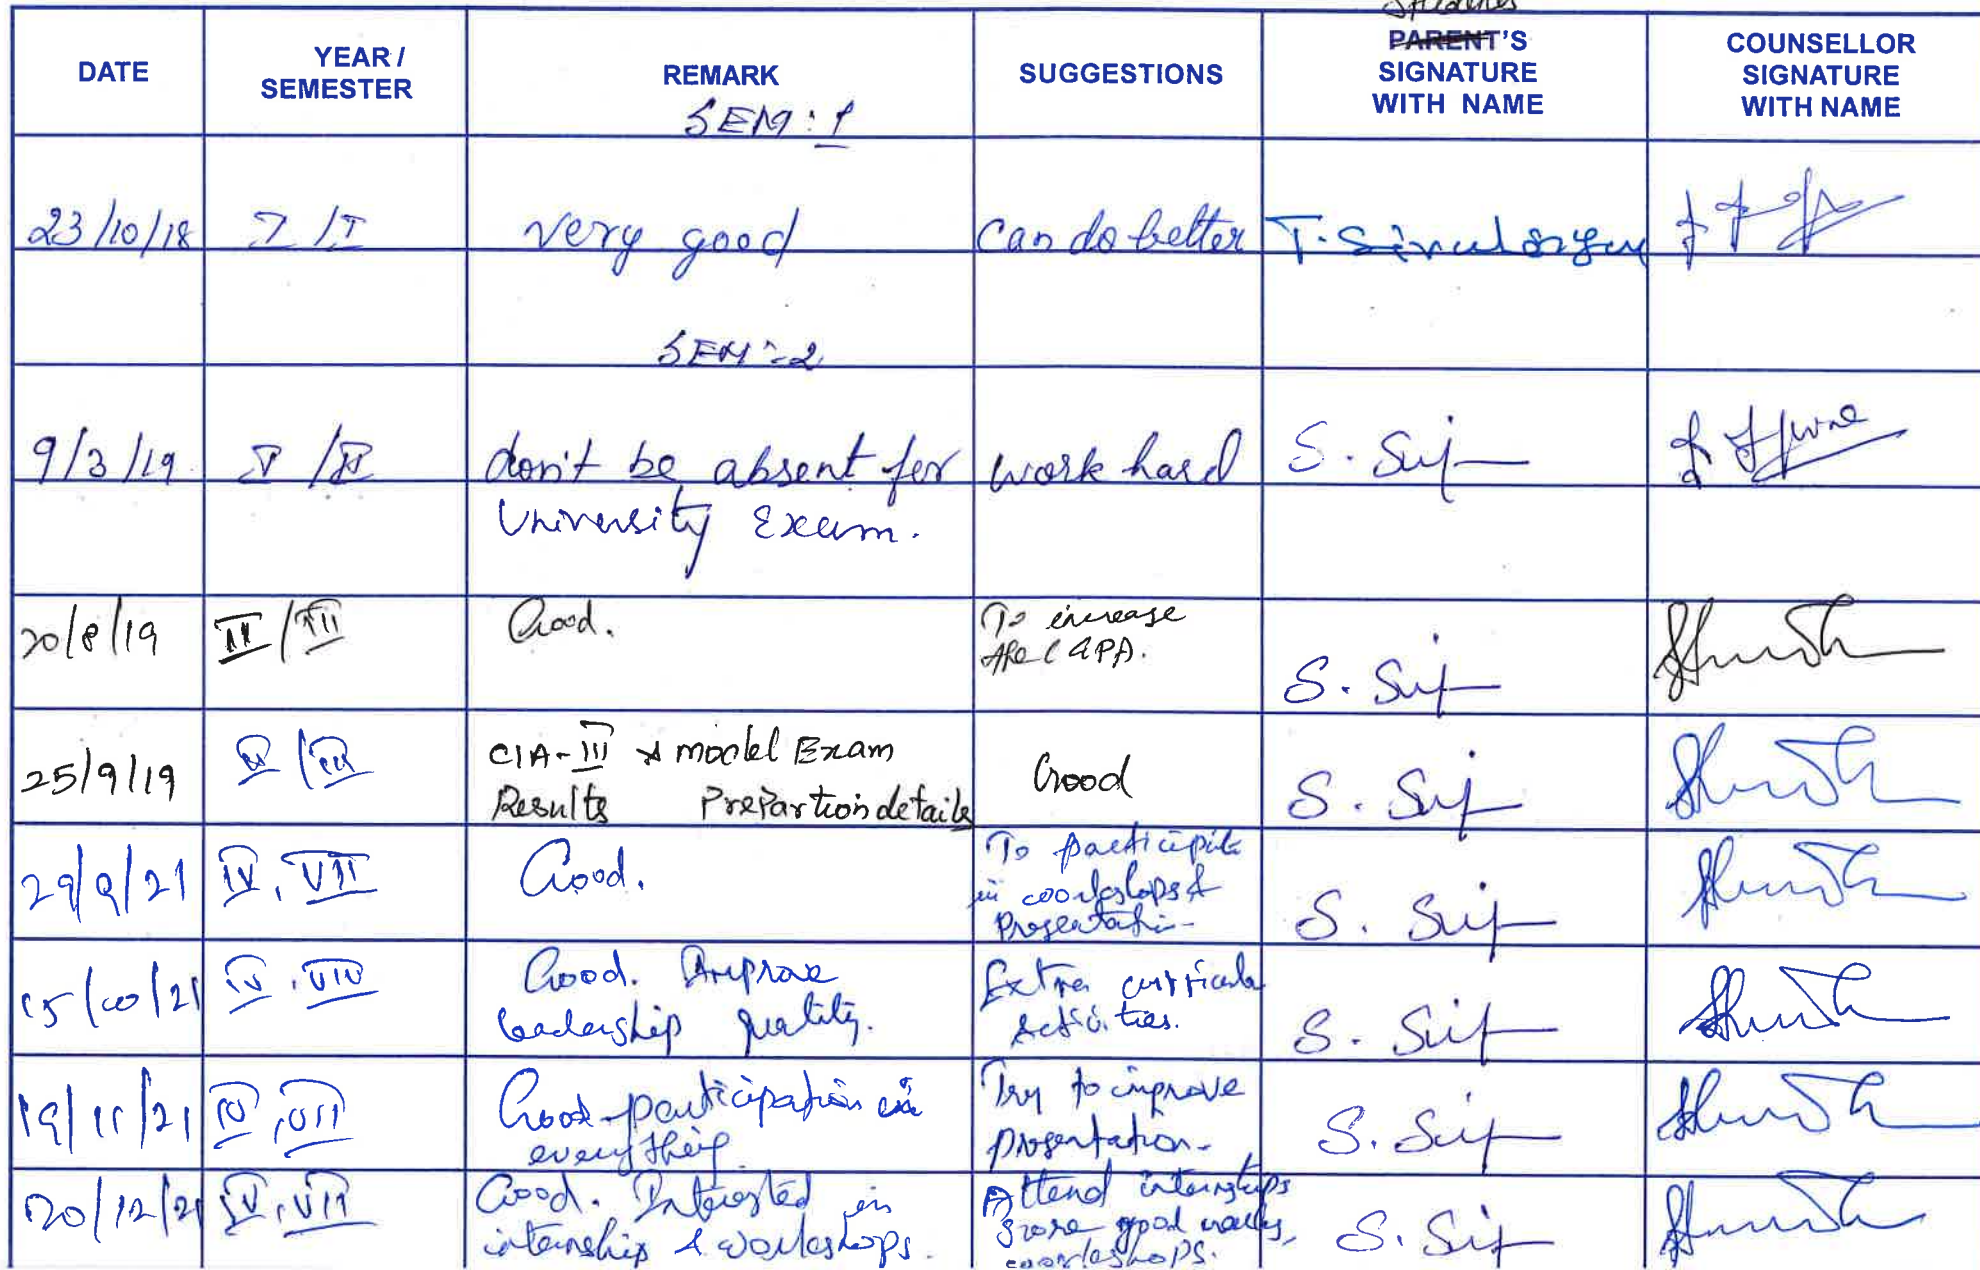 Students
DATE
YEAR /
SEMESTER
REMARK
SEM : 1
SUGGESTIONS
PARENT'S
SIGNATURE
WITH NAME
COUNSELLOR
SIGNATURE
WITH NAME
23/10/18 I / I very good Can do better
SEM : 2
9/3/19 don't be absent for work hard
University Exam.
20/8/19 II / III Good. To increase
the CGPA.
25/9/19 II / III CIA - III & model Exam
Results Prepartion details
Good
29/9/21 IV, VII Good. To participate
in workshops &
Presentation
15/10/21 IV, VII Good. Improve
leadership quality.
Extra curricular
activities.
19/11/21 IV, VII Good participation in
everything
Try to improve
presentation.
20/12/21 IV, VII Good. Interested in
internship & workshops.
Attend internships
good
workshops.
S. Suj